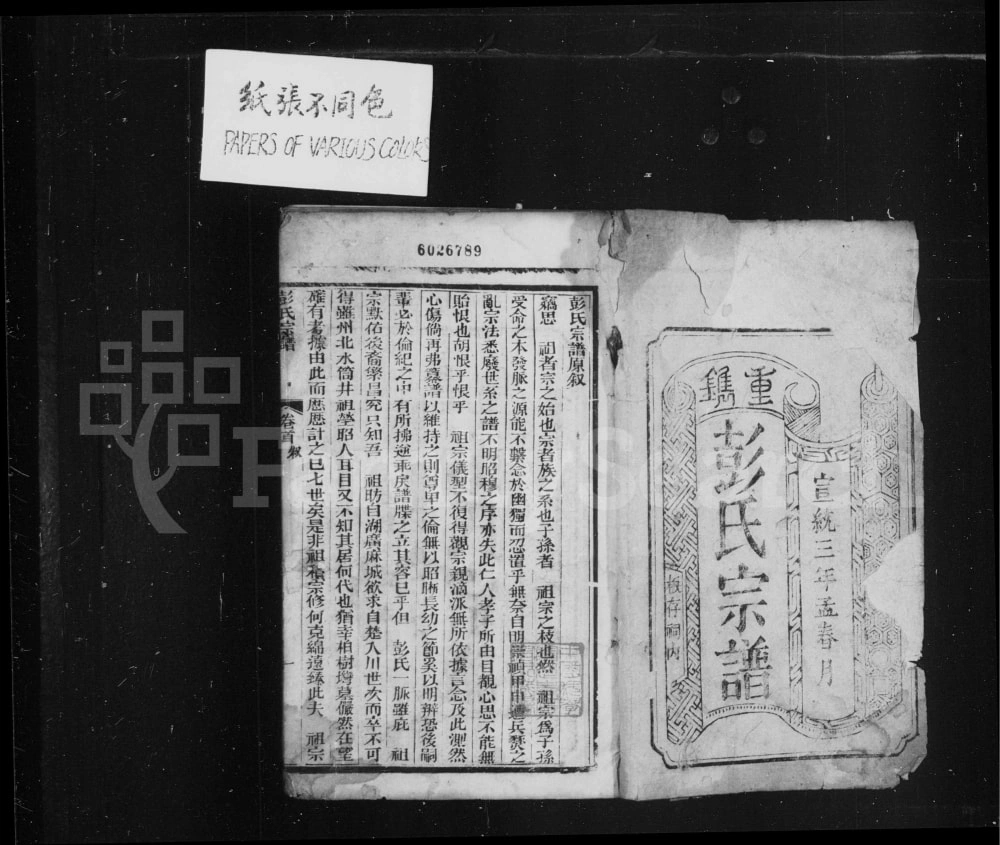 紙張不同色
PAPERS OF VARIOUS COLORS
6026789
重鐫
宣統三年孟春月
彭氏宗譜
板存祠內
彭氏宗譜原叙
竊思 祖者宗之始也宗者族之系也子孫者 祖宗之枝也然 祖宗為子孫
受命之本發脈之源能不繫念於幽獨而忍置乎無奈自明崇禎甲申遭兵燹之
亂宗法悉廢世系之譜不明昭穆之序亦失此仁人孝子所由目覩心思不能無
貽恨也胡恨乎恨乎 祖宗儀型不復得觀宗親滴派無所依據言念及此測然
心傷倘再弗纂譜以維持之則尊卑之倫無以昭晰長幼之節奚以明辨恐後嗣
輩必於倫紀之中有所拂逆乖戾譜牒之立其容已乎但 彭氏一脈雖庇 祖
宗默佑後裔繁昌究只知吾 祖昉自湖廣麻城欲求自楚入川世次而卒不可
得雖州北水筒井祖塋昭人耳目又不知其居何代也猶幸柏樹灣墓儼然在望
確有考據由此而歷歷計之已七世矣是非祖積宗修何克綿遠臻此夫 祖宗
彭氏宗譜
卷首 叙
一